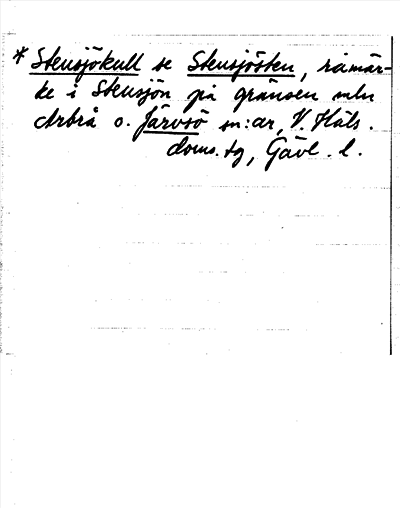 * Stensjökull se Stensjösten, råmär-
ke i Stensjön på gränsen mln
Arbrå o. Järvsö sn:ar, V. Häls.
doms. tg, Gävl. l.